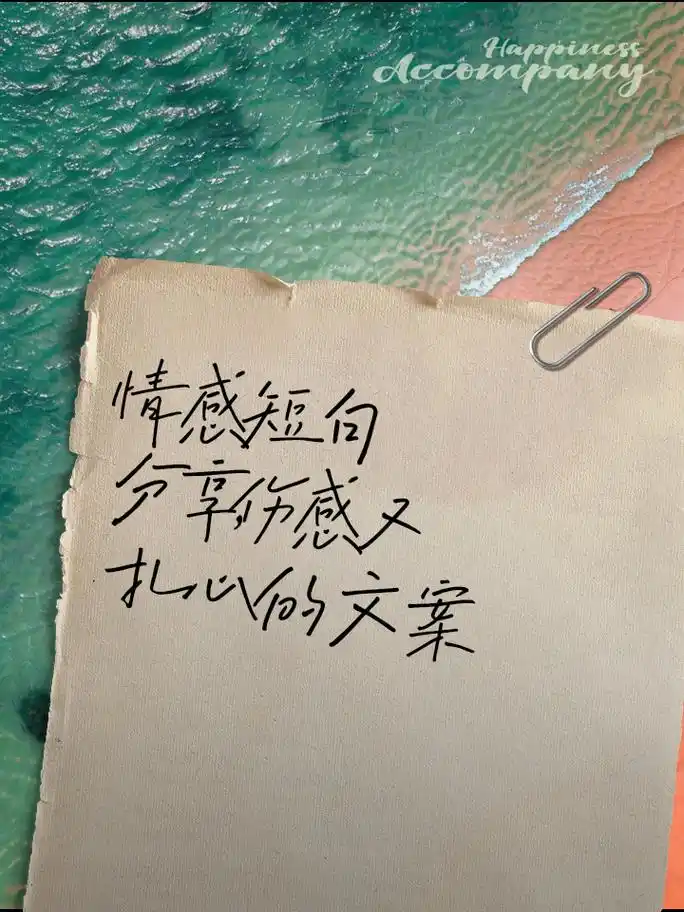 Happiness
Accompany
情感短句
分享伤感又
扎心的文案